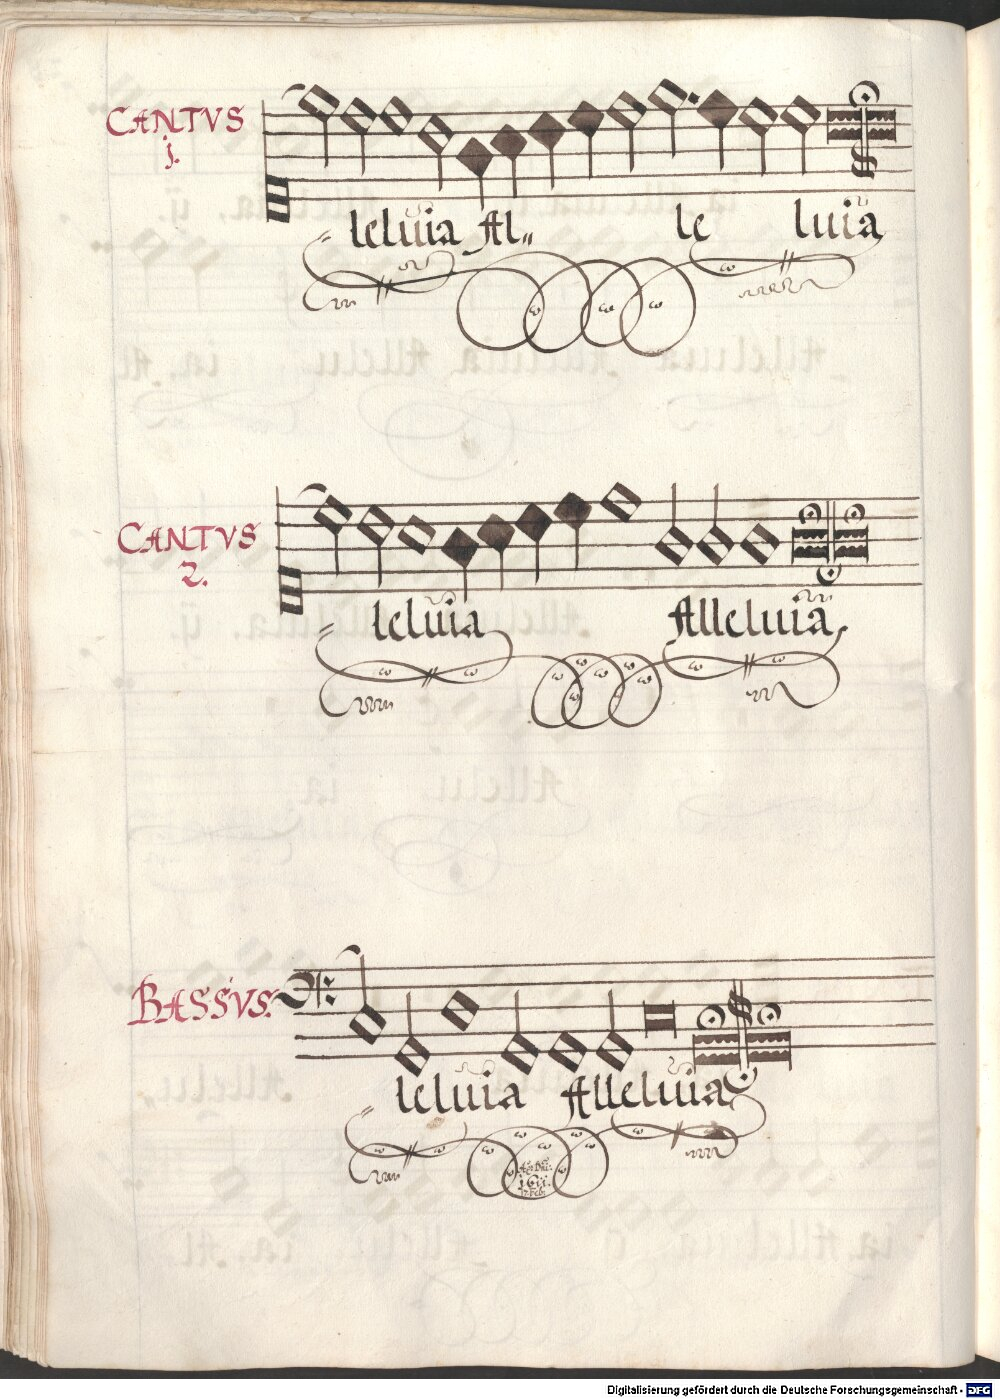 CANTVS
1.
leluia Al„ le luia
CANTVS
2.
leluia Alleluia
BASSVS.
leluia Alleluia
1611.
17. Feb:
Digitalisierung gefördert durch die Deutsche Forschungsgemeinschaft - DFG